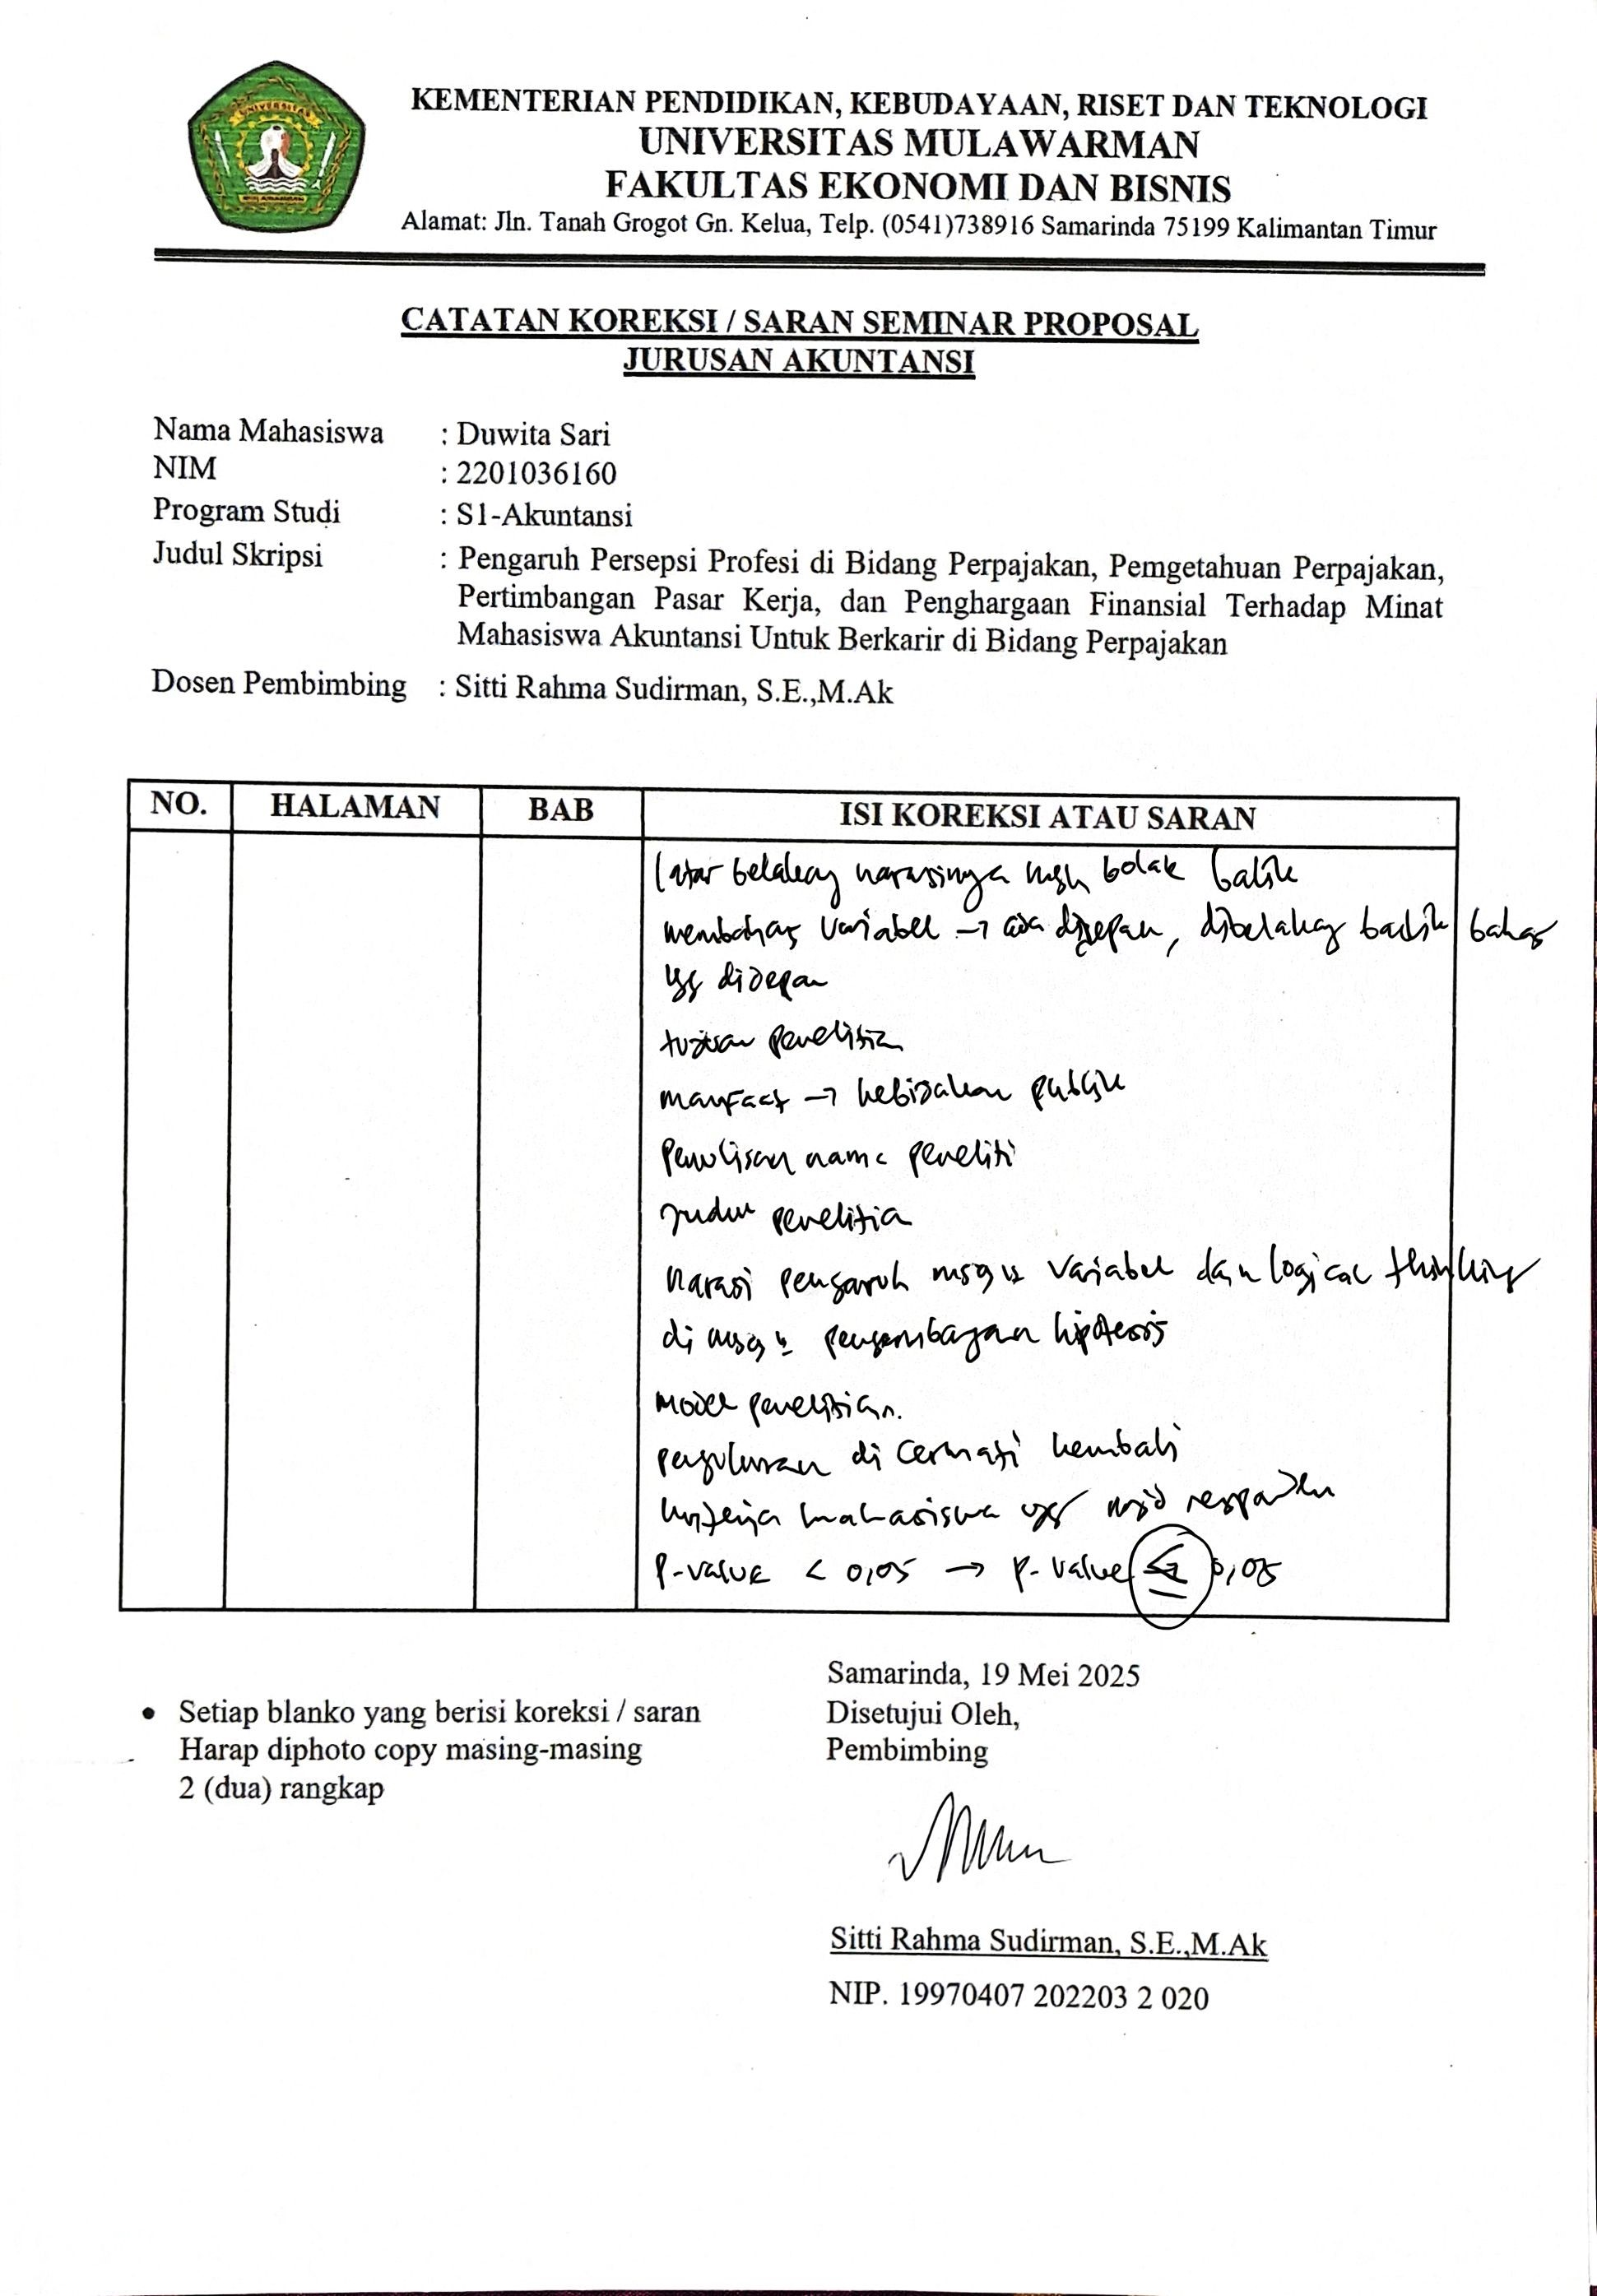 UNIVERSITAS
MULAWARMAN
KEMENTERIAN PENDIDIKAN, KEBUDAYAAN, RISET DAN TEKNOLOGI
UNIVERSITAS MULAWARMAN
FAKULTAS EKONOMI DAN BISNIS
Alamat: Jln. Tanah Grogot Gn. Kelua, Telp. (0541)738916 Samarinda 75199 Kalimantan Timur
CATATAN KOREKSI / SARAN SEMINAR PROPOSAL
JURUSAN AKUNTANSI
Nama Mahasiswa : Duwita Sari
NIM : 2201036160
Program Studi : S1-Akuntansi
Judul Skripsi : Pengaruh Persepsi Profesi di Bidang Perpajakan, Pemgetahuan Perpajakan,
Pertimbangan Pasar Kerja, dan Penghargaan Finansial Terhadap Minat
Mahasiswa Akuntansi Untuk Berkarir di Bidang Perpajakan
Dosen Pembimbing : Sitti Rahma Sudirman, S.E.,M.Ak
NO. HALAMAN BAB ISI KOREKSI ATAU SARAN
latar belakang narasinya msh bolak balik
membahas variabel → ada didepan, dibelakang balik bahas
yg didepan
tujuan penelitian
manfaat → kebijakan publik
penulisan nama peneliti
judul penelitian
narasi pengaruh msg2 variabel dan logical thinking
di msg2 pengembangan hipotesis
model penelitian.
pengukuran di cermati kembali
kriteria mahasiswa yg mjd responden
P-value < 0,05 → P-value ≤ 0,05
Samarinda, 19 Mei 2025
• Setiap blanko yang berisi koreksi / saran Disetujui Oleh,
Harap diphoto copy masing-masing Pembimbing
2 (dua) rangkap
Sitti Rahma Sudirman, S.E.,M.Ak
NIP. 19970407 202203 2 020